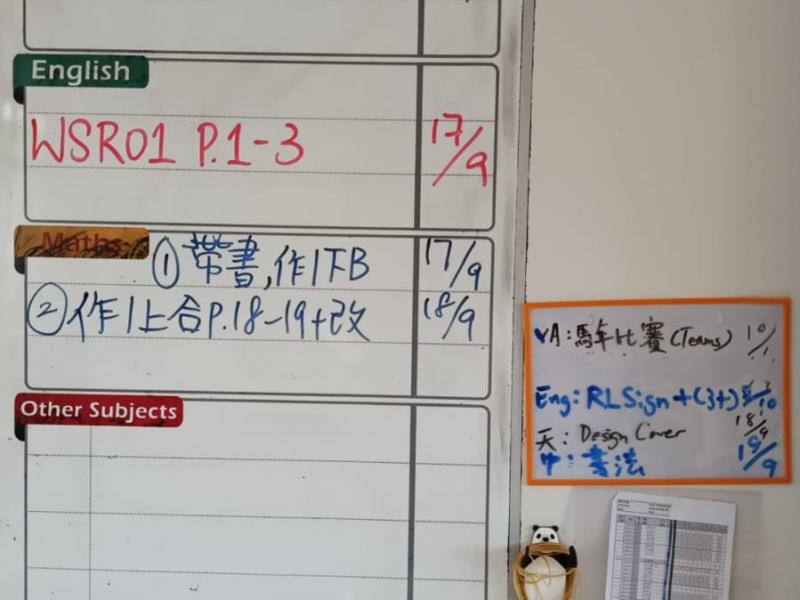 English
WSR01 P.1-3 17/9
Maths
① 帶書,作1下B 17/9
② 作1上合P.18-19+改 18/9
Other Subjects
VA: 馬年比賽(Teams) 10/1
Eng: RL Sign +(3+) /10
天: Design Cover 18/9
中: 書法 19/9